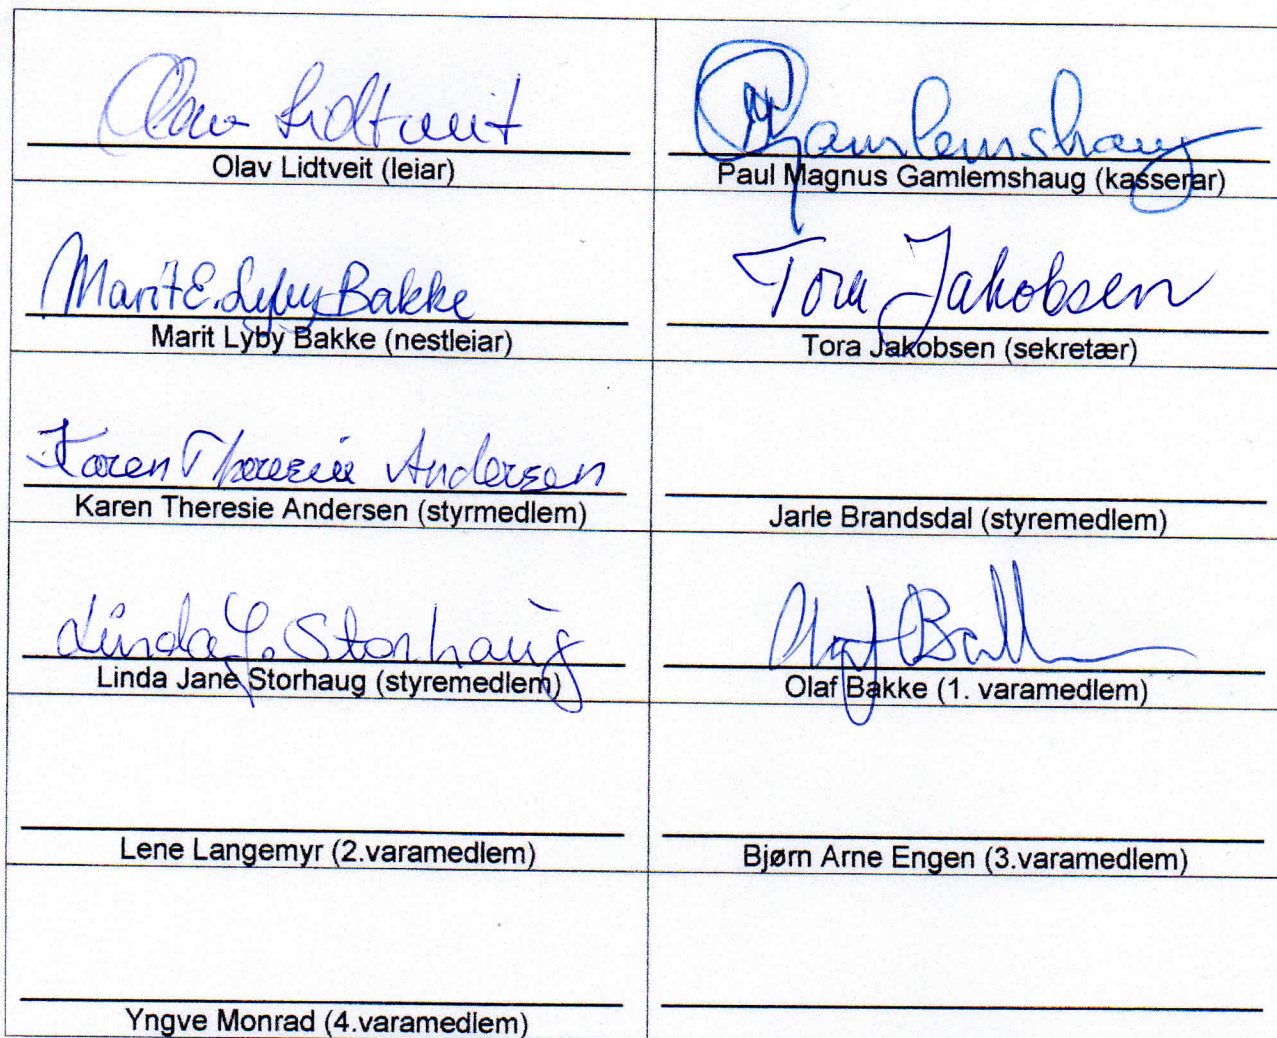 Olav Lidtveit
Olav Lidtveit (leiar)
PGamlemshaug
Paul Magnus Gamlemshaug (kasserar)
Marit E. Lyby Bakke
Marit Lyby Bakke (nestleiar)
Tora Jakobsen
Tora Jakobsen (sekretær)
Karen Theresie Andersen
Karen Theresie Andersen (styrmedlem)
Jarle Brandsdal (styremedlem)
Linda J. Storhaug
Linda Jane Storhaug (styremedlem)
Olaf Bakke
Olaf Bakke (1. varamedlem)
Lene Langemyr (2.varamedlem)
Bjørn Arne Engen (3.varamedlem)
Yngve Monrad (4.varamedlem)